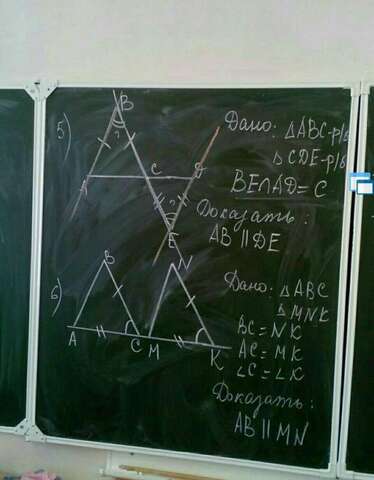 5)
B
?
A
C
D
?
E
Дано: △ABC-р/б
△CDE-р/б
BE∩AD=C
Доказать:
AB || DE
6)
B
N
A
C
M
K
Дано: △ABC
△MNK
BC=NK
AC=MK
∠C=∠K
Доказать:
AB || MN